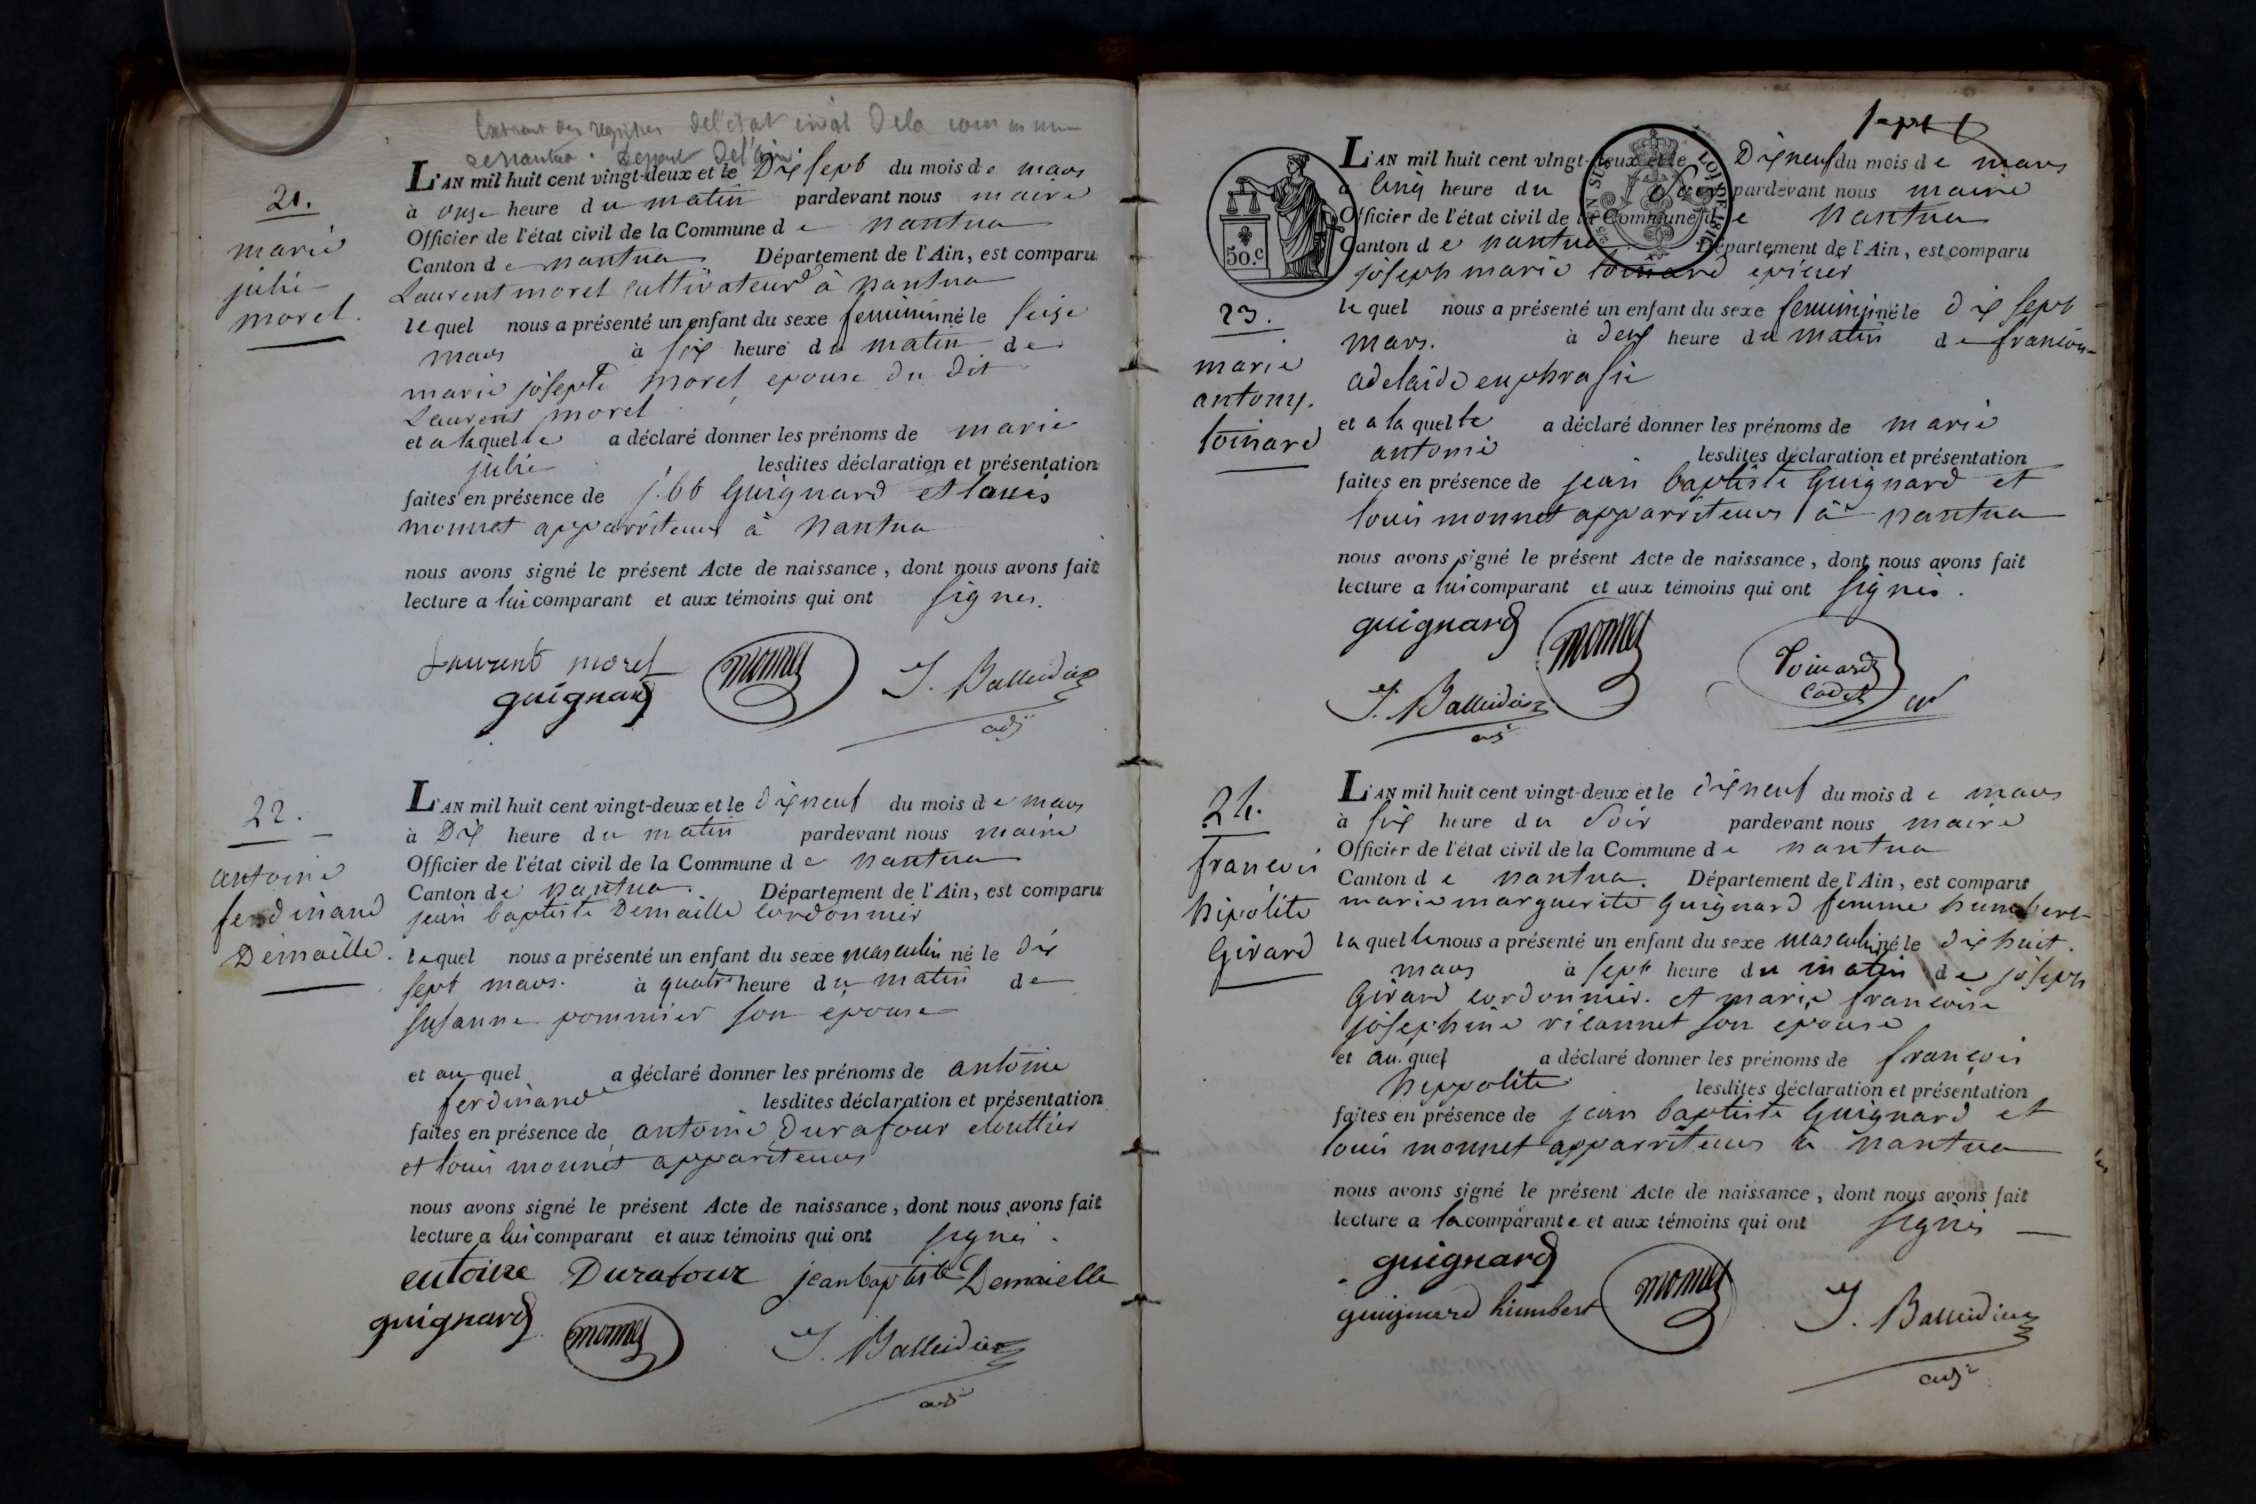 Extrait des registres de l'état civil de la commune
de nantua. Depart de l'ain
21.
marie
julie
morel.
L'AN mil huit cent vingt-deux et le Dix sept du mois de mars
à onze heure du matin pardevant nous maire
Officier de l'état civil de la Commune de nantua
Canton de nantua Département de l'Ain, est comparu
Laurent morel cultivateur à nantua
lequel nous a présenté un enfant du sexe feminin né le seize
mars à six heure du matin de
marie josephte morel epouse du dit
Laurent morel
et a laquelle a déclaré donner les prénoms de marie
julie lesdites déclaration et présentation
faites en présence de j. bt Guignard et louis
monnet apparriteurs à nantua
nous avons signé le présent Acte de naissance, dont nous avons fait
lecture a lui comparant et aux témoins qui ont signes.
Laurent morel
guignard monnet J. Balleidier
adj
22.
antoine
ferdinand
Demaille.
L'AN mil huit cent vingt-deux et le dix neuf du mois de mars
à Dix heure du matin pardevant nous maire
Officier de l'état civil de la Commune de nantua
Canton de nantua. Département de l'Ain, est comparu
jean baptiste Demaille cordonnier
lequel nous a présenté un enfant du sexe masculin né le dix
sept mars. à quatre heure du matin de
susanne pommier son epouse
et au quel a déclaré donner les prénoms de antoine
ferdinand lesdites déclaration et présentation
faites en présence de antoine durafour clouttier
et louis monnet appariteurs
nous avons signé le présent Acte de naissance, dont nous avons fait
lecture a lui comparant et aux témoins qui ont signés.
entoine Durafour jean baptiste Demaielle
guignard monnet J. Balleidier
adj
sept
50.c
LOI DE 1816
L'AN mil huit cent vingt-deux et le Dix neuf du mois de mars
à cinq heure du soir pardevant nous maire
Officier de l'état civil de la Commune de nantua
Canton de nantua Département de l'Ain, est comparu
joseph marie toinard epicier
23.
marie
antony.
toinard
lequel nous a présenté un enfant du sexe feminin né le dix sept
mars. à deux heure du matin de francoise
adelaide euphrasie
et a la quelle a déclaré donner les prénoms de marie
antonie lesdites déclaration et présentation
faites en présence de jean baptiste Guignard et
louis monnet apparriteurs à nantua
nous avons signé le présent Acte de naissance, dont nous avons fait
lecture a lui comparant et aux témoins qui ont signés.
guignard monnet Toinard
cadet
J. Balleidier
adj
24.
francois
hipolite
Girard
L'AN mil huit cent vingt-deux et le dix neuf du mois de mars
à six heure du soir pardevant nous maire
Officier de l'état civil de la Commune de nantua
Canton de nantua. Département de l'Ain, est comparu
marie marguerite Guignard femme humbert
laquelle nous a présenté un enfant du sexe masculin né le dix huit.
mars à sept heure du matin de joseph
Girard cordonnier. et marie francoise
josephine son epouse
et au quel a déclaré donner les prénoms de francois
hippolite lesdites déclaration et présentation
faites en présence de jean baptiste Guignard et
louis monnet apparriteurs à nantua
nous avons signé le présent Acte de naissance, dont nous avons fait
lecture a la comparante et aux témoins qui ont signés
guignard
guignard humbert monnet J. Balleidier
adj